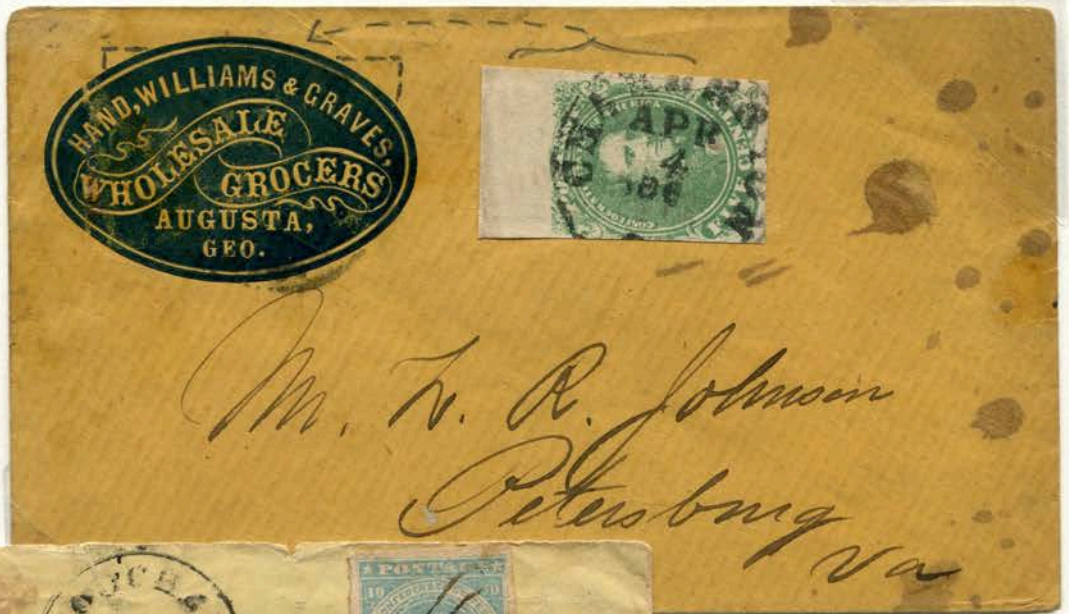 HAND, WILLIAMS & GRAVES,
WHOLESALE
GROCERS
AUGUSTA,
GEO.
APR
4
Mr. L. R. Johnson
Petersburg
Va
POSTAGE
10